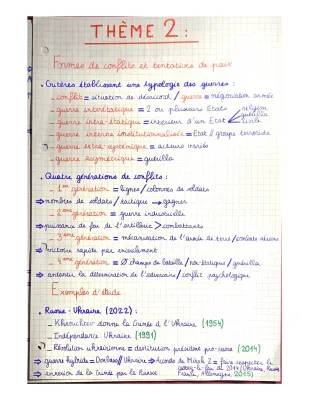 THÈME 2 :
Formes de conflits et tentatives de paix
. Critères établissant une typologie des guerres :
_ conflit = situation de désaccord / guerre = négociation armée
_ guerre interétatique = 2 ou plusieurs Etats
_ guerre intra-étatique = intérieur d'un Etat religion guérilla civile
_ guerre interne institutionnalisée = Etat / groupe terroriste
_ guerre extra-systémique = acteurs variés
_ guerre asymétrique = guérilla
. Quatre générations de conflits :
_ 1ère génération = lignes / colonnes de soldats
⇒ nombres de soldats / tactique → gagner
_ 2ème génération = guerre industrielle
⇒ puissance de feu de l'artillerie > combattants
_ 3ème génération = mécanisation de l'armée de terre / combats aériens
⇒ victoire rapide par encerclement
_ 4ème génération = Ø champs de bataille / non-étatique / guérilla
⇒ anéantir la détermination de l'adversaire / conflit psychologique
Exemples d'étude
. Russie - Ukraine (2022) :
_ Khrouchtchev donne la Crimée à l'Ukraine (1954)
_ Indépendance Ukraine (1991)
_ Révolution ukrainienne = destitution président pro-russe (2014)
⇒ guerre hybride = Donbass / Ukraine ⇒ Accords de Minsk 2 = faire respecter le cessez-le-feu de 2014 (Ukraine, Russie, France, Allemagne, 2015)
⇒ annexion de la Crimée par la Russie